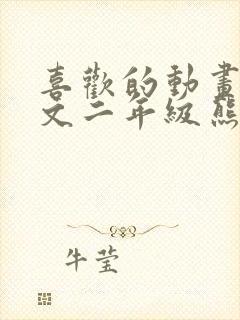 喜歡的動畫
文二年級熊
牛莹